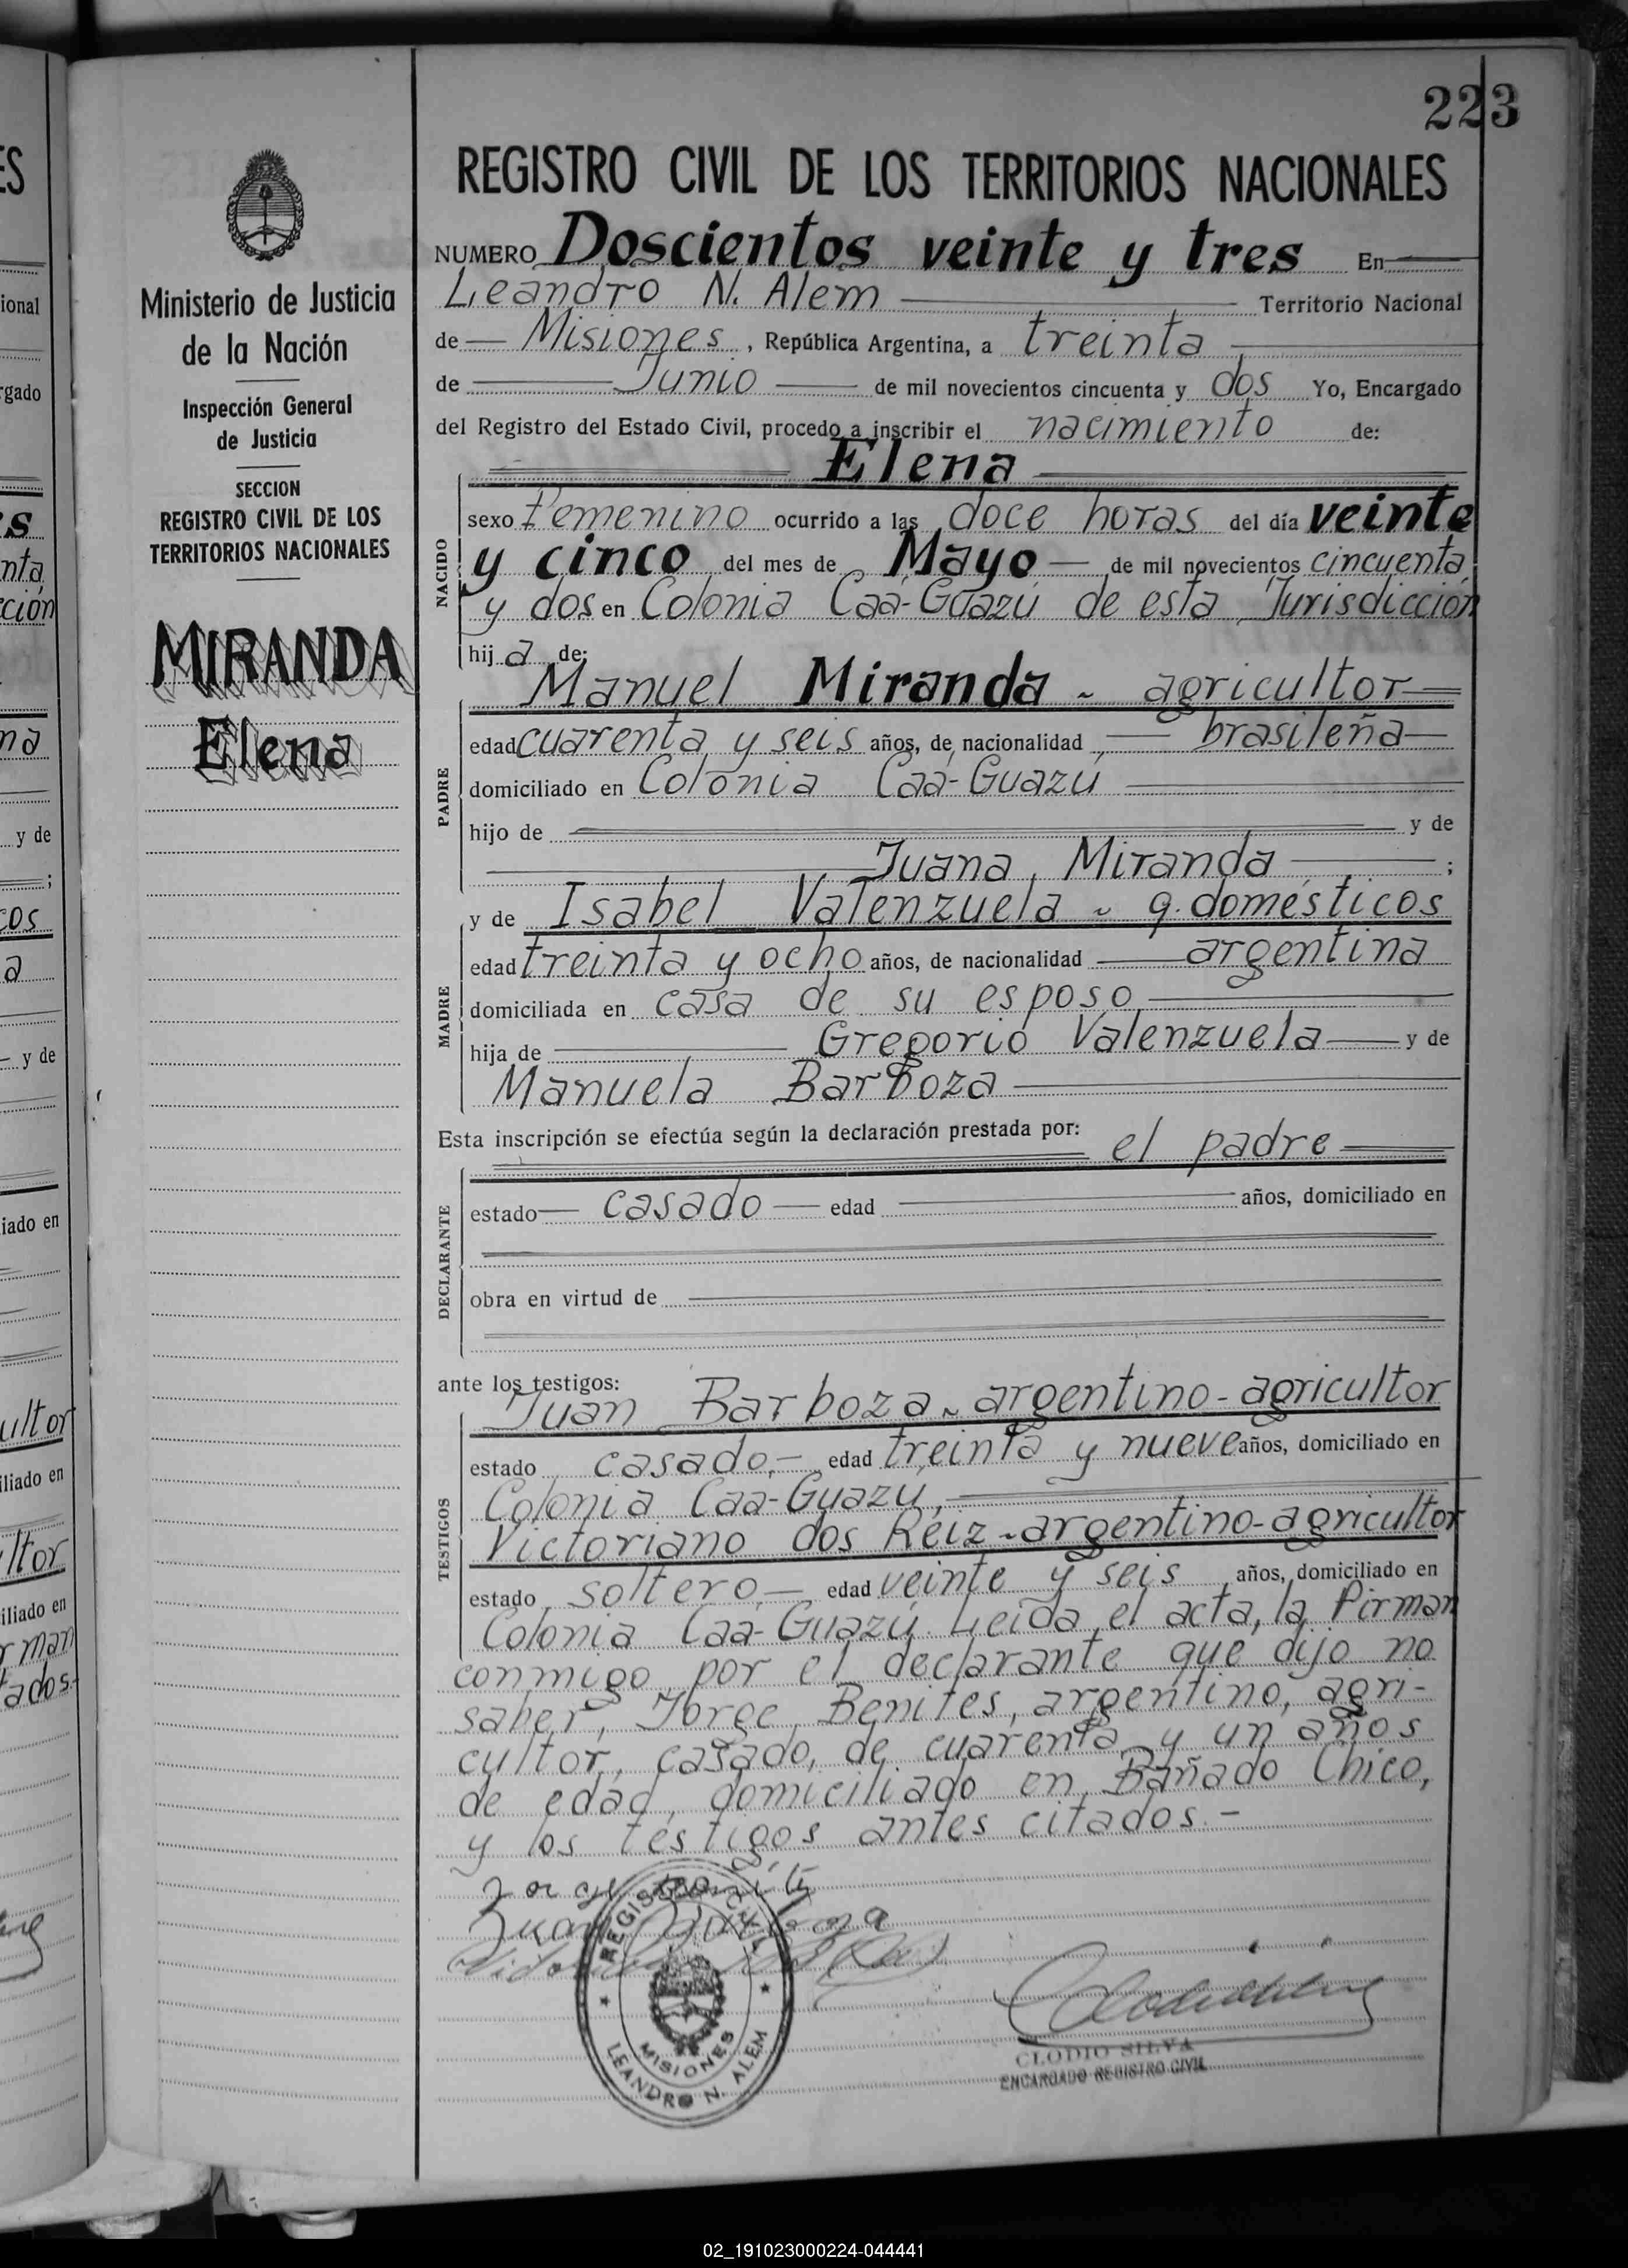 223
Ministerio de Justicia
de la Nación
Inspección General
de Justicia
SECCION
REGISTRO CIVIL DE LOS
TERRITORIOS NACIONALES
MIRANDA
Elena
REGISTRO CIVIL DE LOS TERRITORIOS NACIONALES
NUMERO Doscientos veinte y tres En
Leandro N. Alem Territorio Nacional
de Misiones, República Argentina, a treinta
de Junio de mil novecientos cincuenta y dos Yo, Encargado
del Registro del Estado Civil, procedo a inscribir el nacimiento de:
Elena
NACIDO
sexo Femenino ocurrido a las doce horas del día veinte
y cinco del mes de Mayo de mil novecientos cincuenta
y dos en Colonia Caa-Guazú de esta Jurisdicción
hija de:
Manuel Miranda - agricultor
PADRE
edad cuarenta y seis años, de nacionalidad brasileña
domiciliado en Colonia Caá-Guazú
hijo de y de
Juana Miranda ;
y de Isabel Valenzuela - q. domésticos
MADRE
edad treinta y ocho años, de nacionalidad argentina
domiciliada en casa de su esposo
hija de Gregorio Valenzuela y de
Manuela Barboza
Esta inscripción se efectúa según la declaración prestada por: el padre
DECLARANTE
estado casado edad años, domiciliado en
obra en virtud de
ante los testigos:
Juan Barboza - argentino - agricultor
TESTIGOS
estado casado.- edad treinta y nueve años, domiciliado en
Colonia Caa-Guazú,
Victoriano dos Reiz - argentino - agricultor
estado soltero edad veinte y seis años, domiciliado en
Colonia Caa-Guazú. Leída el acta, la firman
conmigo por el declarante que dijo no
saber, Jorge Benites, argentino, agri-
cultor, casado, de cuarenta y un años
de edad, domiciliado en Bañado Chico,
y los testigos antes citados.-
Jorge Benites
Juan Barboza
REGISTRO CIVIL
MISIONES
LEANDRO N. ALEM
CLODIO SILVA
ENCARGADO REGISTRO CIVIL
02_191023000224-044441